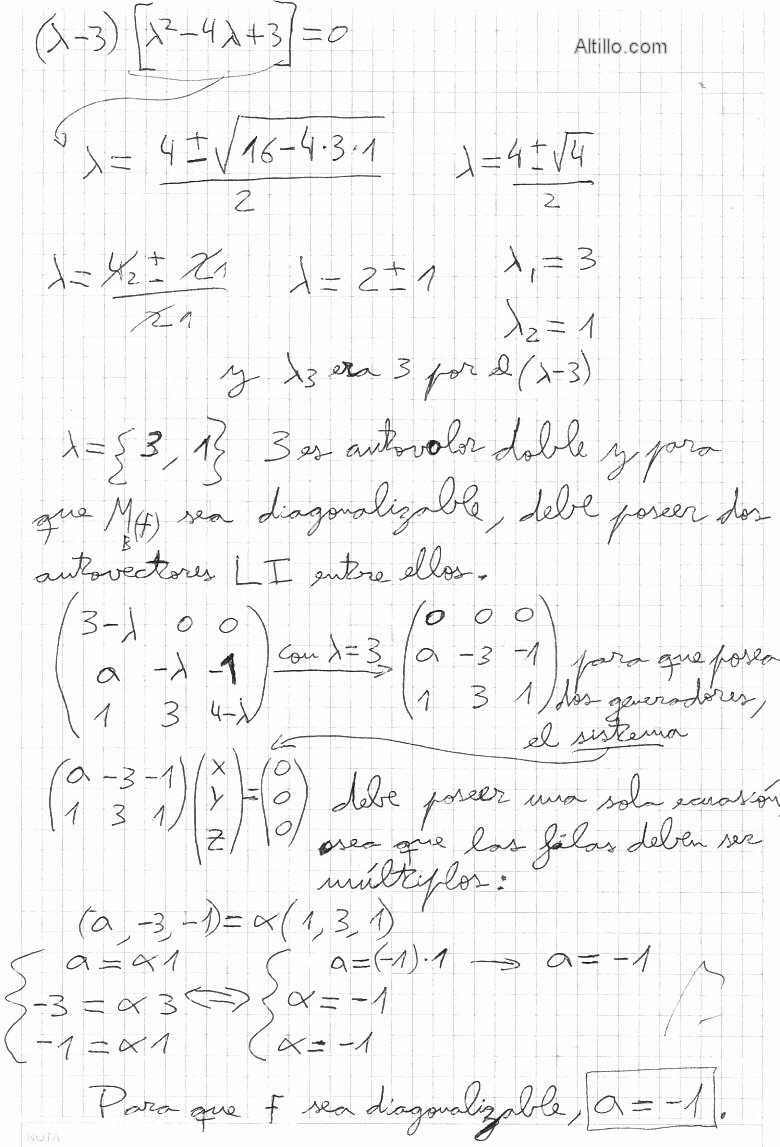 (λ-3) [λ²-4λ+3] = 0
Altillo.com
λ = (4 ± √(16-4·3·1))/2 λ = (4 ± √4)/2
λ = (4̸2 ± 2̸1)/(2̸1) λ = 2 ± 1 λ₁ = 3
λ₂ = 1
y λ₃ era 3 por el (λ-3)
λ = {3, 1} 3 es autovalor doble y para
que M_B(f) sea diagonalizable, debe poseer dos
autovectores LI entre ellos.
(3-λ 0 0) (0 0 0)
(a -λ -1) con λ=3 → (a -3 -1) para que posea
(1 3 4-λ) (1 3 1) dos generadores,
el sistema
(a -3 -1) (x) = (0)
(1 3 1) (y) (0) debe poseer una sola ecuasión
(z) (0) osea que las filas deben ser
múltiplos:
(a, -3, -1) = α(1, 3, 1)
{ a = α1 { a = (-1)·1 → a = -1
{ -3 = α3 ⇔ { α = -1
{ -1 = α1 { α = -1
Para que f sea diagonalizable, a = -1.
NOTA